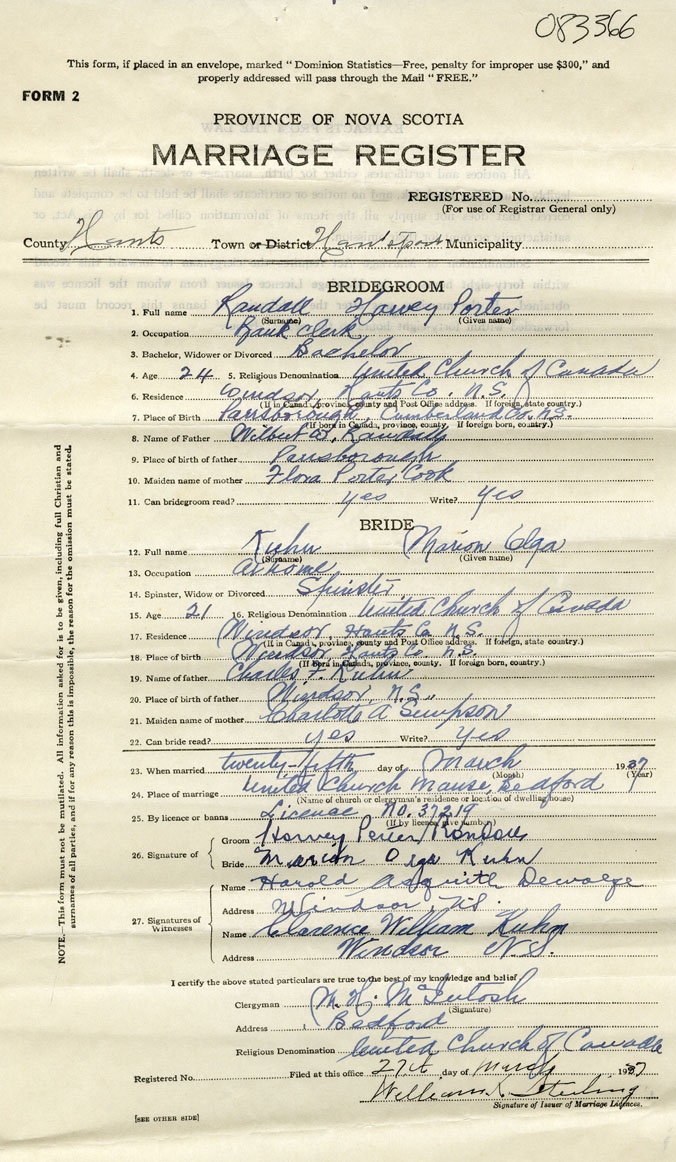 083366
This form, if placed in an envelope, marked "Dominion Statistics—Free, penalty for improper use $300," and
properly addressed will pass through the Mail "FREE."
FORM 2
PROVINCE OF NOVA SCOTIA
MARRIAGE REGISTER
REGISTERED No.
(For use of Registrar General only)
County Hants Town or District Hantsport Municipality
BRIDEGROOM
1. Full name Randall Harvey Porter
(Surname) (Given name)
2. Occupation Bank clerk
3. Bachelor, Widower or Divorced Bachelor
4. Age 24 5. Religious Denomination United Church of Canada
6. Residence Windsor, Hants Co. N.S.
(If in Canada, province, county and Post Office address. If foreign, state country.)
7. Place of Birth Parrsborough, Cumberland Co. N.S.
(If born in Canada, province, county. If foreign born, country.)
8. Name of Father Wilbut Randall
9. Place of birth of father Parrsborough
10. Maiden name of mother Flora Porter Cook
11. Can bridegroom read? yes Write? yes
BRIDE
12. Full name Kuhn Marion Olga
(Surname) (Given name)
13. Occupation At home
14. Spinster, Widow or Divorced Spinster
15. Age 21 16. Religious Denomination United Church of Canada
17. Residence Windsor, Hants Co. N.S.
(If in Canada, province, county and Post Office address. If foreign, state country.)
18. Place of Birth Windsor, Hants Co. N.S.
(If born in Canada, province, county. If foreign born, country.)
19. Name of father Charles F. Kuhn
20. Place of birth of father Windsor N.S.
21. Maiden name of mother Charlotte A Simpson
22. Can bride read? yes Write? yes
23. When married twenty-fifth day of March 1937
(Month) (Year)
24. Place of marriage United Church Manse, Bedford
(Name of church or clergyman's residence or location of dwelling house)
25. By licence or banns License No. 37219
(If by licence, give number)
26. Signature of
Groom Harvey Porter Randall
Bride Marion Olga Kuhn
27. Signatures of Witnesses
Name Harold Asquith
Address Windsor, N.S.
Name Clarence William Kuhn
Address Windsor N.S.
I certify the above stated particulars are true to the best of my knowledge and belief
Clergyman M. H. McIntosh
(Signature)
Address Bedford
Religious Denomination United Church of Canada
Registered No. Filed at this office 27th day of March 1937
William Sterling
Signature of Issuer of Marriage Licences.
[SEE OTHER SIDE]
NOTE.—This form must not be mutilated. All information asked for is to be given, including full Christian and
surnames of all parties, and if for any reason this is impossible, the reason for the omission must be stated.